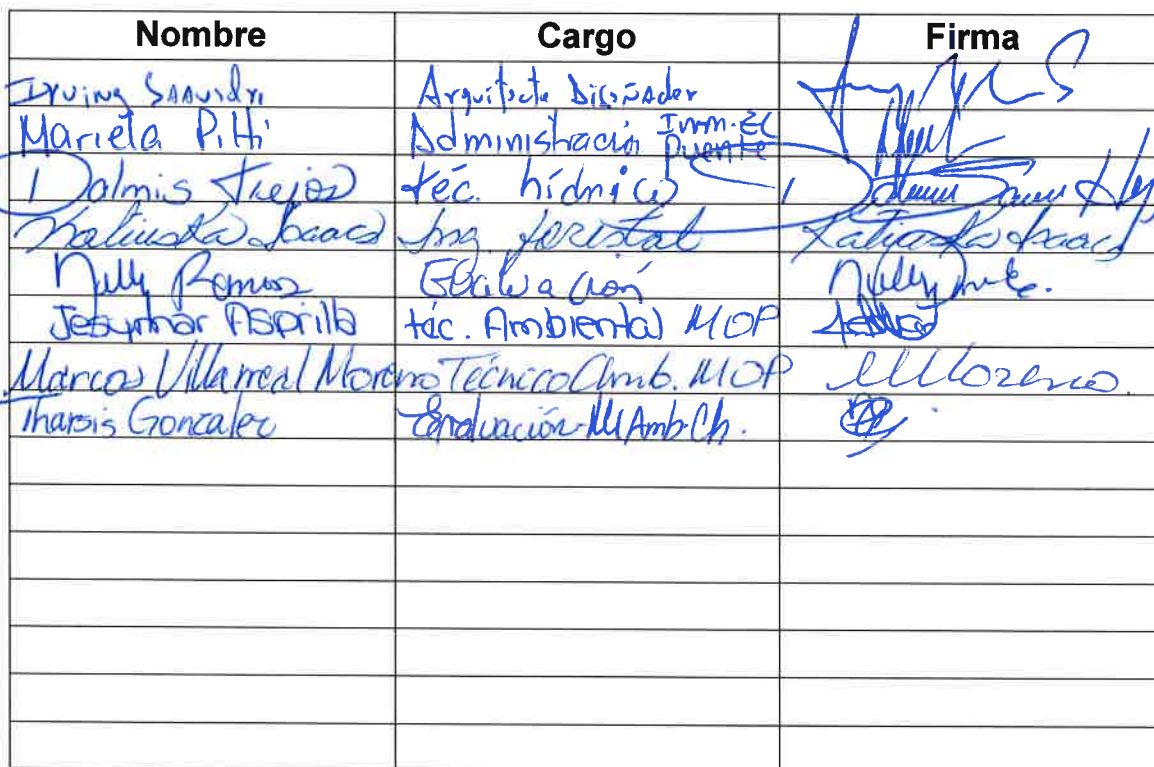 Nombre Cargo Firma
Irving Saavedra Arquitecto Diseñador
Marieta Pitti Administración Inm. El Puente
Dalmis Trejos téc. hídrico
Katiuska Isaacs Ing. forestal Katiuska Isaacs
Nelly Ramos Evaluación
Jesynhar Asprilla téc. Ambiental MOP
Marcos Villarreal Moreno Técnico Amb. MOP MMoreno.
Tharsis Gonzalez Evaluación-MiAmb-Ch.